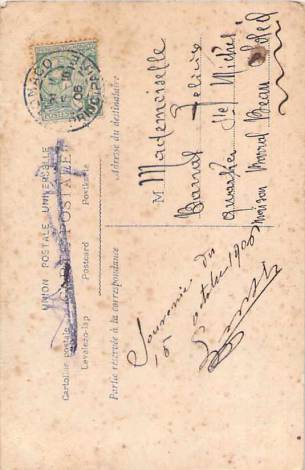 UNION POSTALE UNIVERSELLE
CARTE POSTALE
Cartolina postale Postcard Postkarte
Levelezö-lap
Partie réservée à la correspondance
Adresse du destinataire
MONACO
15
06
PRINCIPAUTÉ
Souvenir du
15 octobre 1906
M Mademoiselle
Barral Félicie
quartier St Michel
maison Barral Beau Soleil